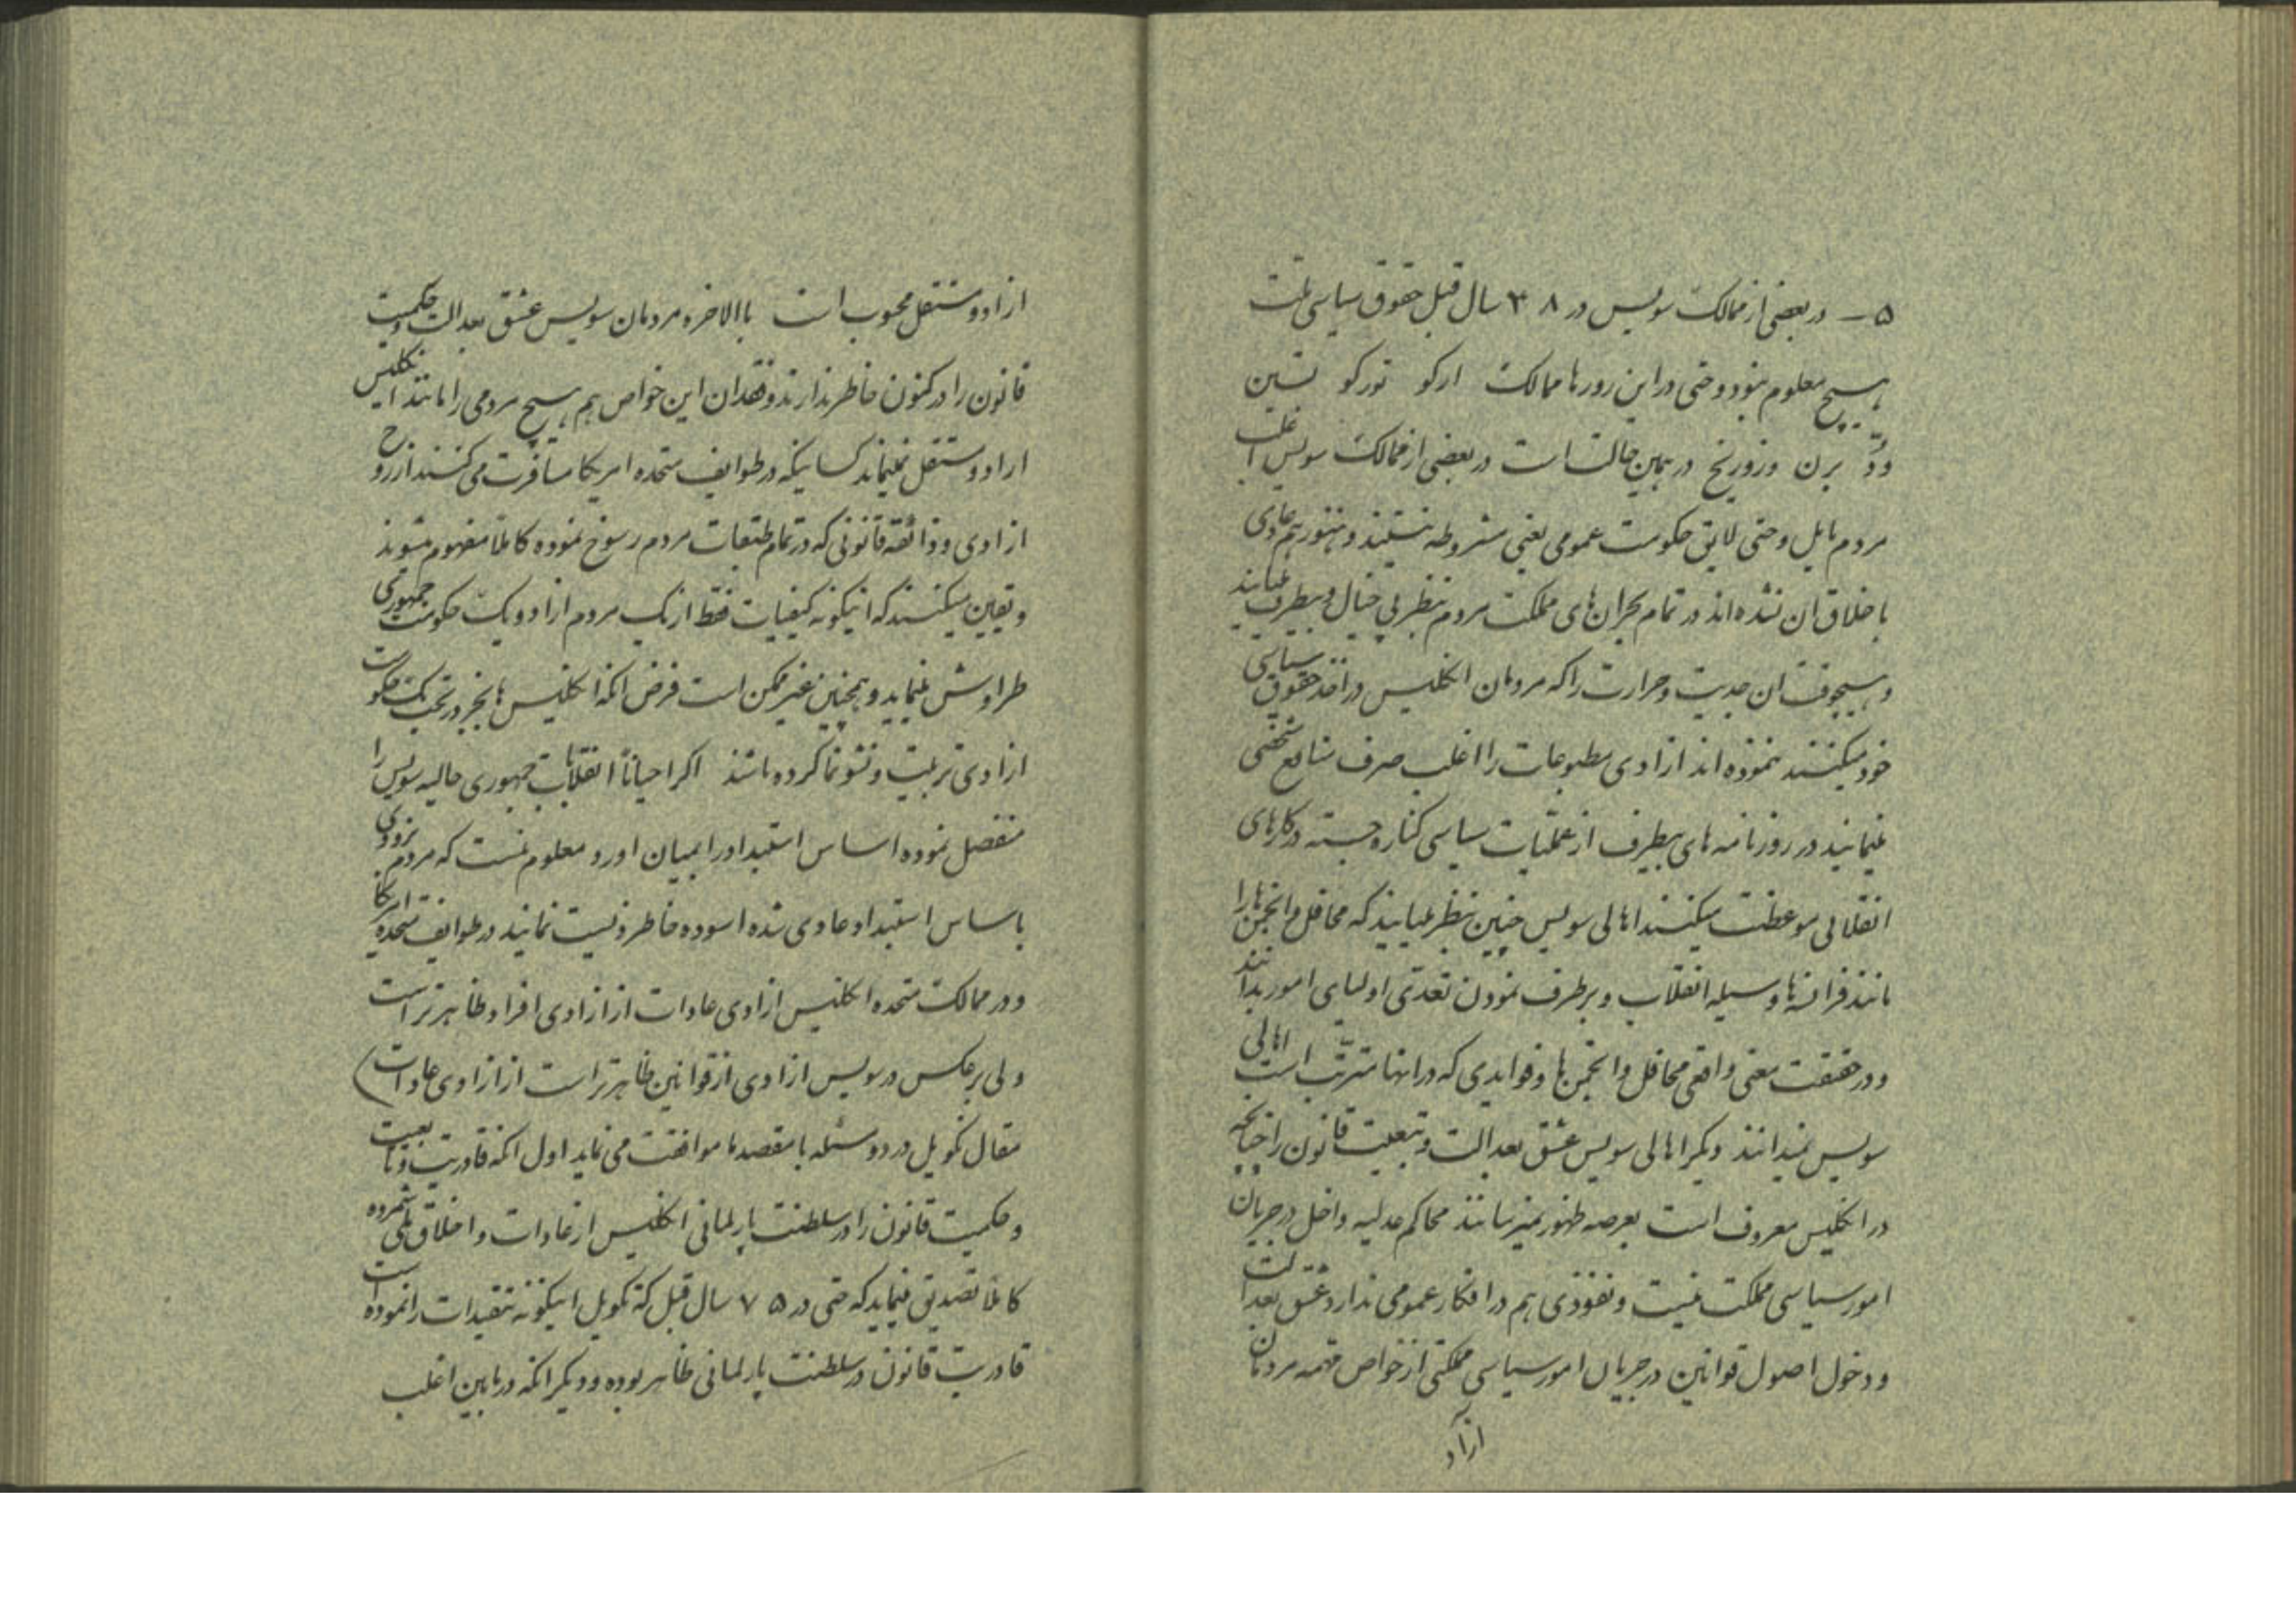 ۵ – در بعضی از ممالک سویس در ۴۸ سال قبل حقوق سیاسی ملت
هیچ معلوم نبود و حتی در این روزها ممالک ارکو تورکو تسین
وود برن و زوریخ در همین حالت است در بعضی از ممالک سویس اغلب
مردم مایل و حتی لایق حکومت عمومی یعنی مشروطه نیستند و هنوز هم عادی
باخلاق ان نشده اند در تمام بحران های مملکت مردم بنظر بی خیال و بیطرف میایند
و هیچوقت ان جدیت و حرارت را که مردمان انگلیس در اخذ حقوق سیاسی
خود میکنند ننموده اند ازادی مطبوعات را اغلب صرف منافع شخصی
مینمایند در روزنامه های بیطرف از عملیات سیاسی کناره جسته در کارهای
انقلابی موعظت میکنند اهالی سویس چنین بنظر میایند که محافل و انجمن ها را
مانند فرانسه ها وسیله انقلاب و برطرف نمودن تعدی اولیای امور بدانند
و در حقیقت معنی واقعی محافل و انجمن ها و فوایدی که در انها مترتب است اهالی
سویس نمیدانند دیگر اهالی سویس عشق بعدالت و تبعیت قانون را چنانچه
در انگلیس معروف است بعرصه ظهور نمیرسانند محاکم عدلیه داخل در جریان
امور سیاسی مملکت نیست و نفوذی هم در افکار عمومی ندارد عشق بعدالت
و دخول اصول قوانین در جریان امور سیاسی مملکتی از خواص مهمه مردمان
آزاد
ازاد و مستقل محبوب است باالاخره مردمان سویس عشق بعدالت و حکمیت
قانون را در کنون خاطر ندارند و فقدان این خواص هم هیچ مردمی را مانند انگلیس
ازاد و مستقل نمینماید کسانیکه در طوایف متحده امریکا مسافرت می کنند از روح
ازادی و ذائقه قانونی که در تمام طبقات مردم رسوخ نموده کاملاً مفهوم میشوند
و یقین میکنند که اینگونه کیفیات فقط از یک مردم ازاد و یک حکومت جمهوری
طراوش مینماید و همچنین غیر ممکن است فرض انکه انگلیس ها بجز در تحت یک حکومت
ازادی تربیت و نشو نما کرده باشند اگر احیاناً انقلابات جمهوری حالیه سویس را
منفصل نموده اساس استبداد را بمیان اورد معلوم نیست که مردم بزودی
باساس استبداد عادی شده اسوده خاطر زیست نمایند در طوایف متحده امریکا
و در ممالک متحده انگلیس ازادی عادات از ازادی افراد ظاهرتر است
ولی برعکس در سویس ازادی از قوانین ظاهرتر است از ازادی عادات)
مقال تکویل در دو مسئله با مقصد ما موافقت می نماید اول انکه قادریت و تابعیت
و حکمیت قانون را در سلطنت پارلمانی انگلیس از عادات و اخلاق ملی شمرده
کاملاً تصدیق مینماید که حتی در ۷۵ سال قبل که تکویل اینگونه تنقیدات را نموده است
قادریت قانون در سلطنت پارلمانی ظاهر بوده و دیگر انکه در مابین اغلب